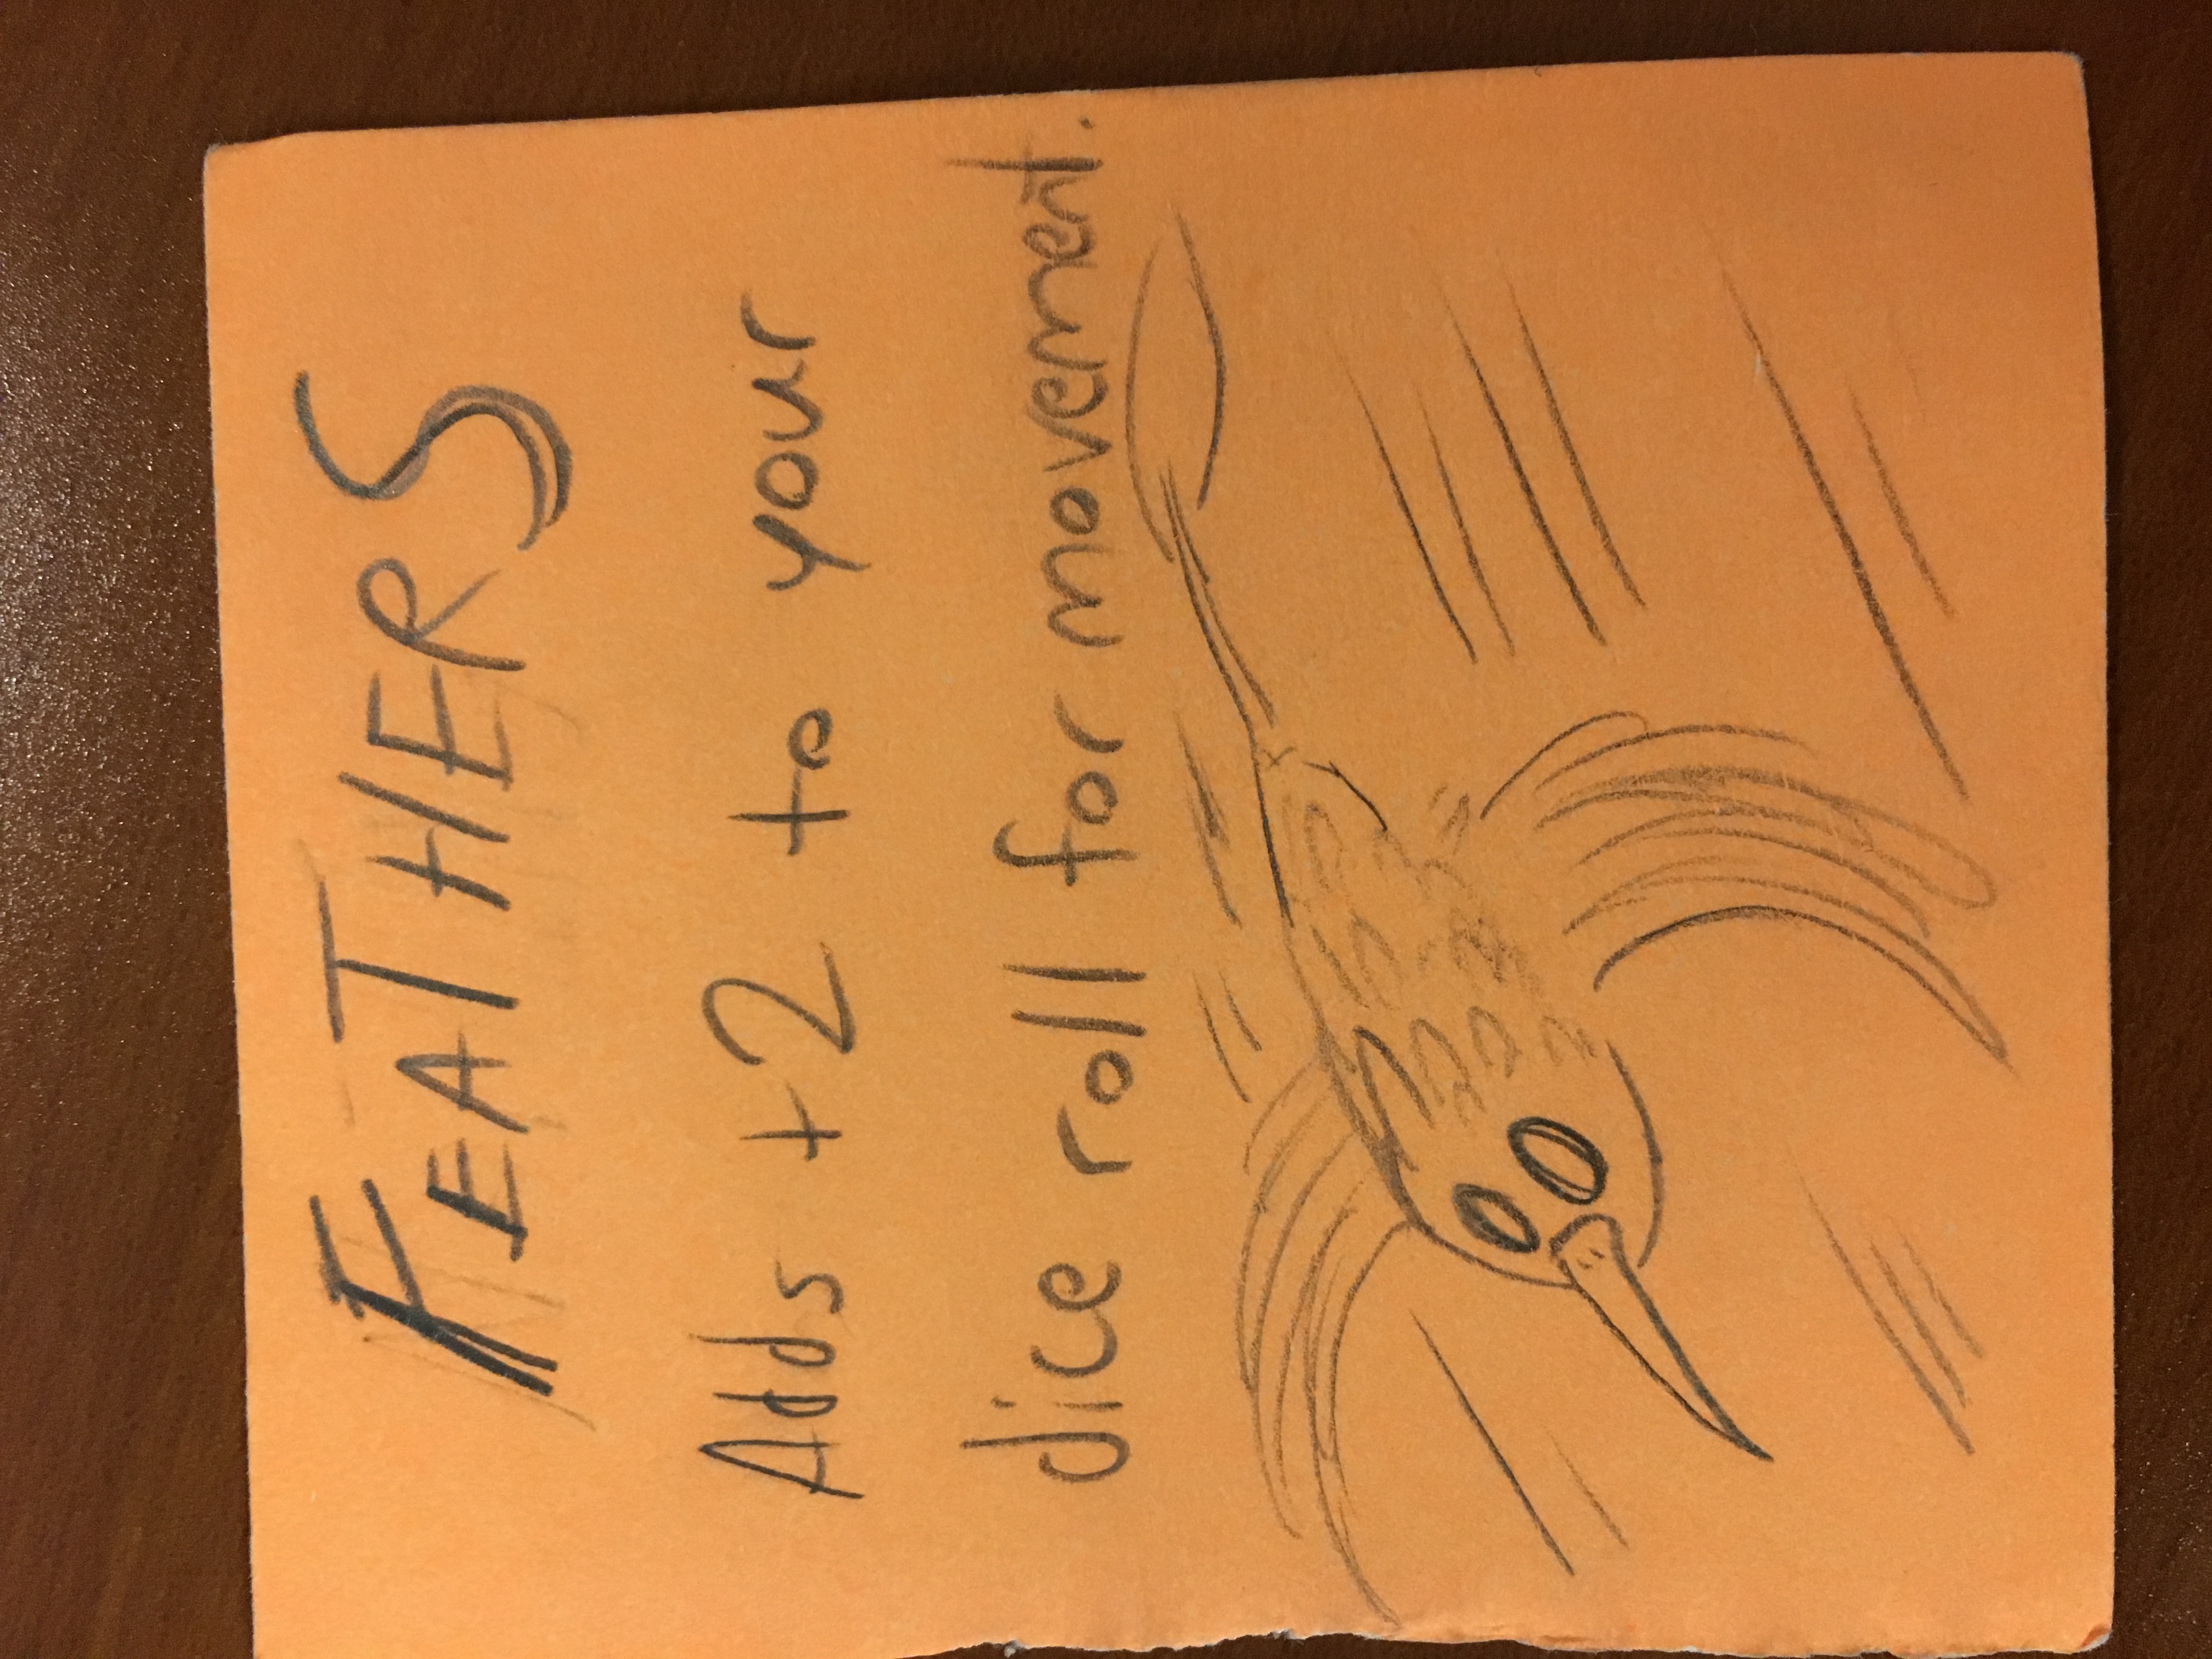 FEATHERS
Adds +2 to your
dice roll for movement.